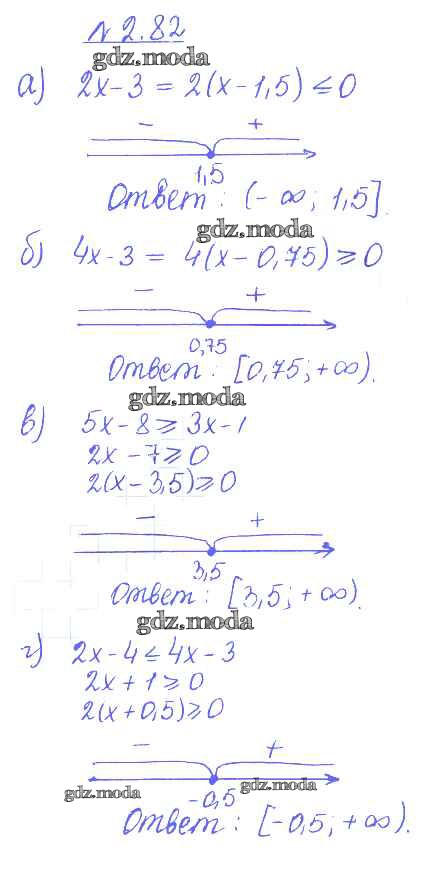 № 2.82
gdz.moda
а) 2x-3 = 2(x-1,5) ≤ 0
- +
1,5
Ответ: (-∞; 1,5].
gdz.moda
б) 4x-3 = 4(x-0,75) ≥ 0
- +
0,75
Ответ: [0,75; +∞).
gdz.moda
в) 5x-8 ≥ 3x-1
2x-7 ≥ 0
2(x-3,5) ≥ 0
- +
3,5
Ответ: [3,5; +∞).
gdz.moda
г) 2x-4 ≤ 4x-3
2x+1 ≥ 0
2(x+0,5) ≥ 0
- +
gdz.moda -0,5 gdz.moda
Ответ: [-0,5; +∞).